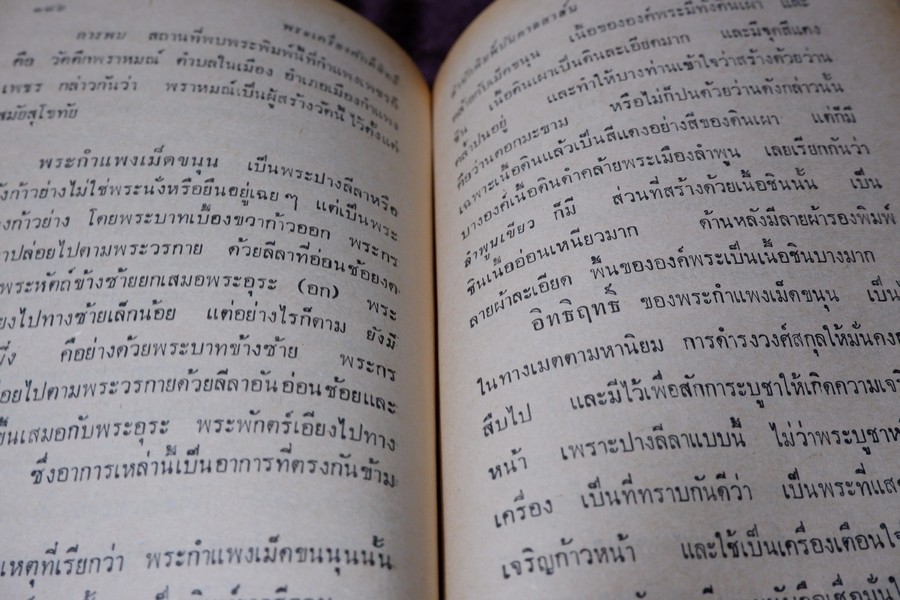 ๑๔๖
พระเครื่องศักดิ์สิทธิ์
การพบ สถานที่พบพระพิมพ์นี้ที่กำแพงเพชรก็
คือ วัดตึกพราหมณ์ ตำบลในเมือง อำเภอเมืองกำแพง
เพชร กล่าวกันว่า พราหมณ์เป็นผู้สร้างวัดนี้ไว้ตั้งแต่
สมัยสุโขทัย
พระกำแพงเม็ดขนุน เป็นพระปางลีลาหรือ
ก้าวอย่างไม่ใช่พระนั่งหรือยืนอยู่เฉย ๆ แต่เป็นพระ
ก้าวย่าง โดยพระบาทเบื้องขวาก้าวออก พระกร
ปล่อยไปตามพระวรกาย ด้วยลีลาที่อ่อนช้อยงด
พระหัตถ์ข้างซ้ายยกเสมอพระอุระ (อก) พระ
ไปทางซ้ายเล็กน้อย แต่อย่างไรก็ตาม ยังมี
คือย่างด้วยพระบาทข้างซ้าย พระกร
ไปตามพระวรกายด้วยลีลาอันอ่อนช้อยและ
ขึ้นเสมอกับพระอุระ พระพักตร์เอียงไปทาง
ซึ่งอาการเหล่านี้เป็นอาการที่ตรงกันข้าม
เหตุที่เรียกว่า พระกำแพงเม็ดขนนุนนั้น
คล้ายกับเม็ดขนุน เนื้อขององค์พระมีทั้งดินเผา และ
ชิน เนื้อดินเผาเป็นดินละเอียดมาก และมีจุดสีแดง
คล้ำปนอยู่ และทำให้บางท่านเข้าใจว่าสร้างด้วยว่าน
คือว่านดอกมะขาม หรือไม่ก็ปนด้วยว่านดังกล่าวนั้น
เฉพาะเนื้อดินแล้วเป็นสีแดงอย่างสีของดินเผา แต่ก็มี
บางองค์เนื้อดินดำคล้ายพระเมืองลำพูน เลยเรียกกันว่า
ลำพูนเขียว ก็มี ส่วนที่สร้างด้วยเนื้อชินนั้น เป็น
ชินเนื้ออ่อนเหนียวมาก ด้านหลังมีลายผ้ารองพิมพ์
ลายผ้าละเอียด พื้นขององค์พระเป็นเนื้อชินบางมาก
อิทธิฤทธิ์ ของพระกำแพงเม็ดขนุน
ในทางเมตตามหานิยม การดำรงวงศ์สกุลให้มั่นคง
สืบไป และมีไว้เพื่อสักการะบูชาให้เกิดความ
หน้า เพราะปางลีลาแบบนี้ ไม่ว่าพระบูชา
เครื่อง เป็นที่ทราบกันดีว่า เป็นพระที่
เจริญก้าวหน้า และใช้เป็นเครื่องเตือน